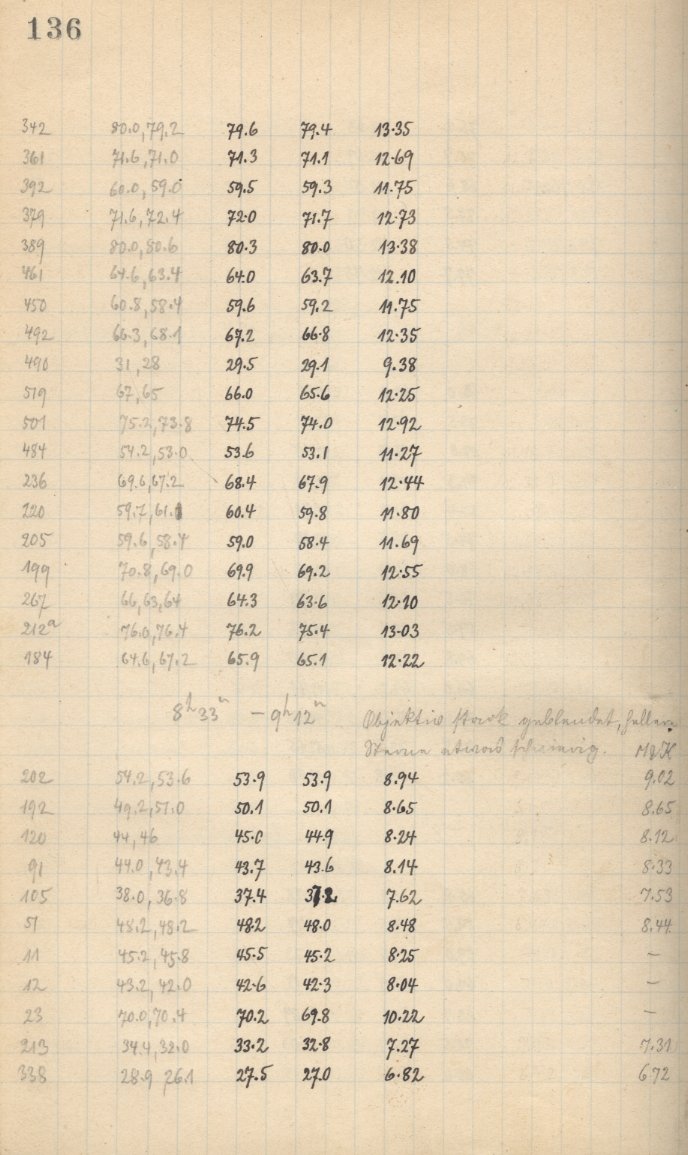 136
342 80.0, 79.2 79.6 79.4 13.35
361 71.6, 71.0 71.3 71.1 12.69
392 60.0, 59.0 59.5 59.3 11.75
379 71.6, 72.4 72.0 71.7 12.73
389 80.0, 80.6 80.3 80.0 13.38
461 64.6, 63.4 64.0 63.7 12.10
450 60.8, 58.4 59.6 59.2 11.75
492 66.3, 68.1 67.2 66.8 12.35
490 31, 28 29.5 29.1 9.38
519 67, 65 66.0 65.6 12.25
501 75.2, 73.8 74.5 74.0 12.92
484 54.2, 53.0 53.6 53.1 11.27
236 69.6, 67.2 68.4 67.9 12.44
220 59.7, 61.1 60.4 59.8 11.80
205 59.6, 58.4 59.0 58.4 11.69
199 70.8, 69.0 69.9 69.2 12.55
267 66, 63, 64 64.3 63.6 12.10
212a 76.0, 76.4 76.2 75.4 13.03
184 64.6, 67.2 65.9 65.1 12.22
8h 33m – 9h 12m Objektiv stark geblendet, hellere
Sterne etwas schwierig.
202 54.2, 53.6 53.9 53.9 8.94 9.02
192 49.2, 51.0 50.1 50.1 8.65 8.65
120 44, 46 45.0 44.9 8.24 8.12
91 44.0, 43.4 43.7 43.6 8.14 8.33
105 38.0, 36.8 37.4 37.2 7.62 7.53
51 48.2, 48.2 48.2 48.0 8.48 8.44
11 45.2, 45.8 45.5 45.2 8.25 –
12 43.2, 42.0 42.6 42.3 8.04 –
23 70.0, 70.4 70.2 69.8 10.22 –
213 34.4, 32.0 33.2 32.8 7.27 7.31
338 28.9 26.1 27.5 27.0 6.82 6.72